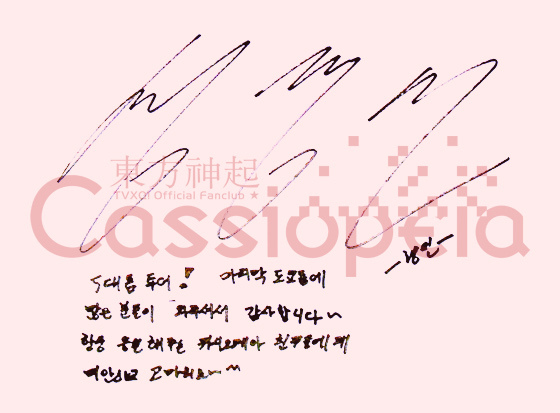 東方神起
TVXQ! Official Fanclub ★
Cassiopeia
-창민-
5대돔 투어! 마지막 도쿄돔에
많은 분들이 와주셔서 감사합니다~
항상 응원해주는 카시오페아 친구들에게
미안하고 고마워요~^^